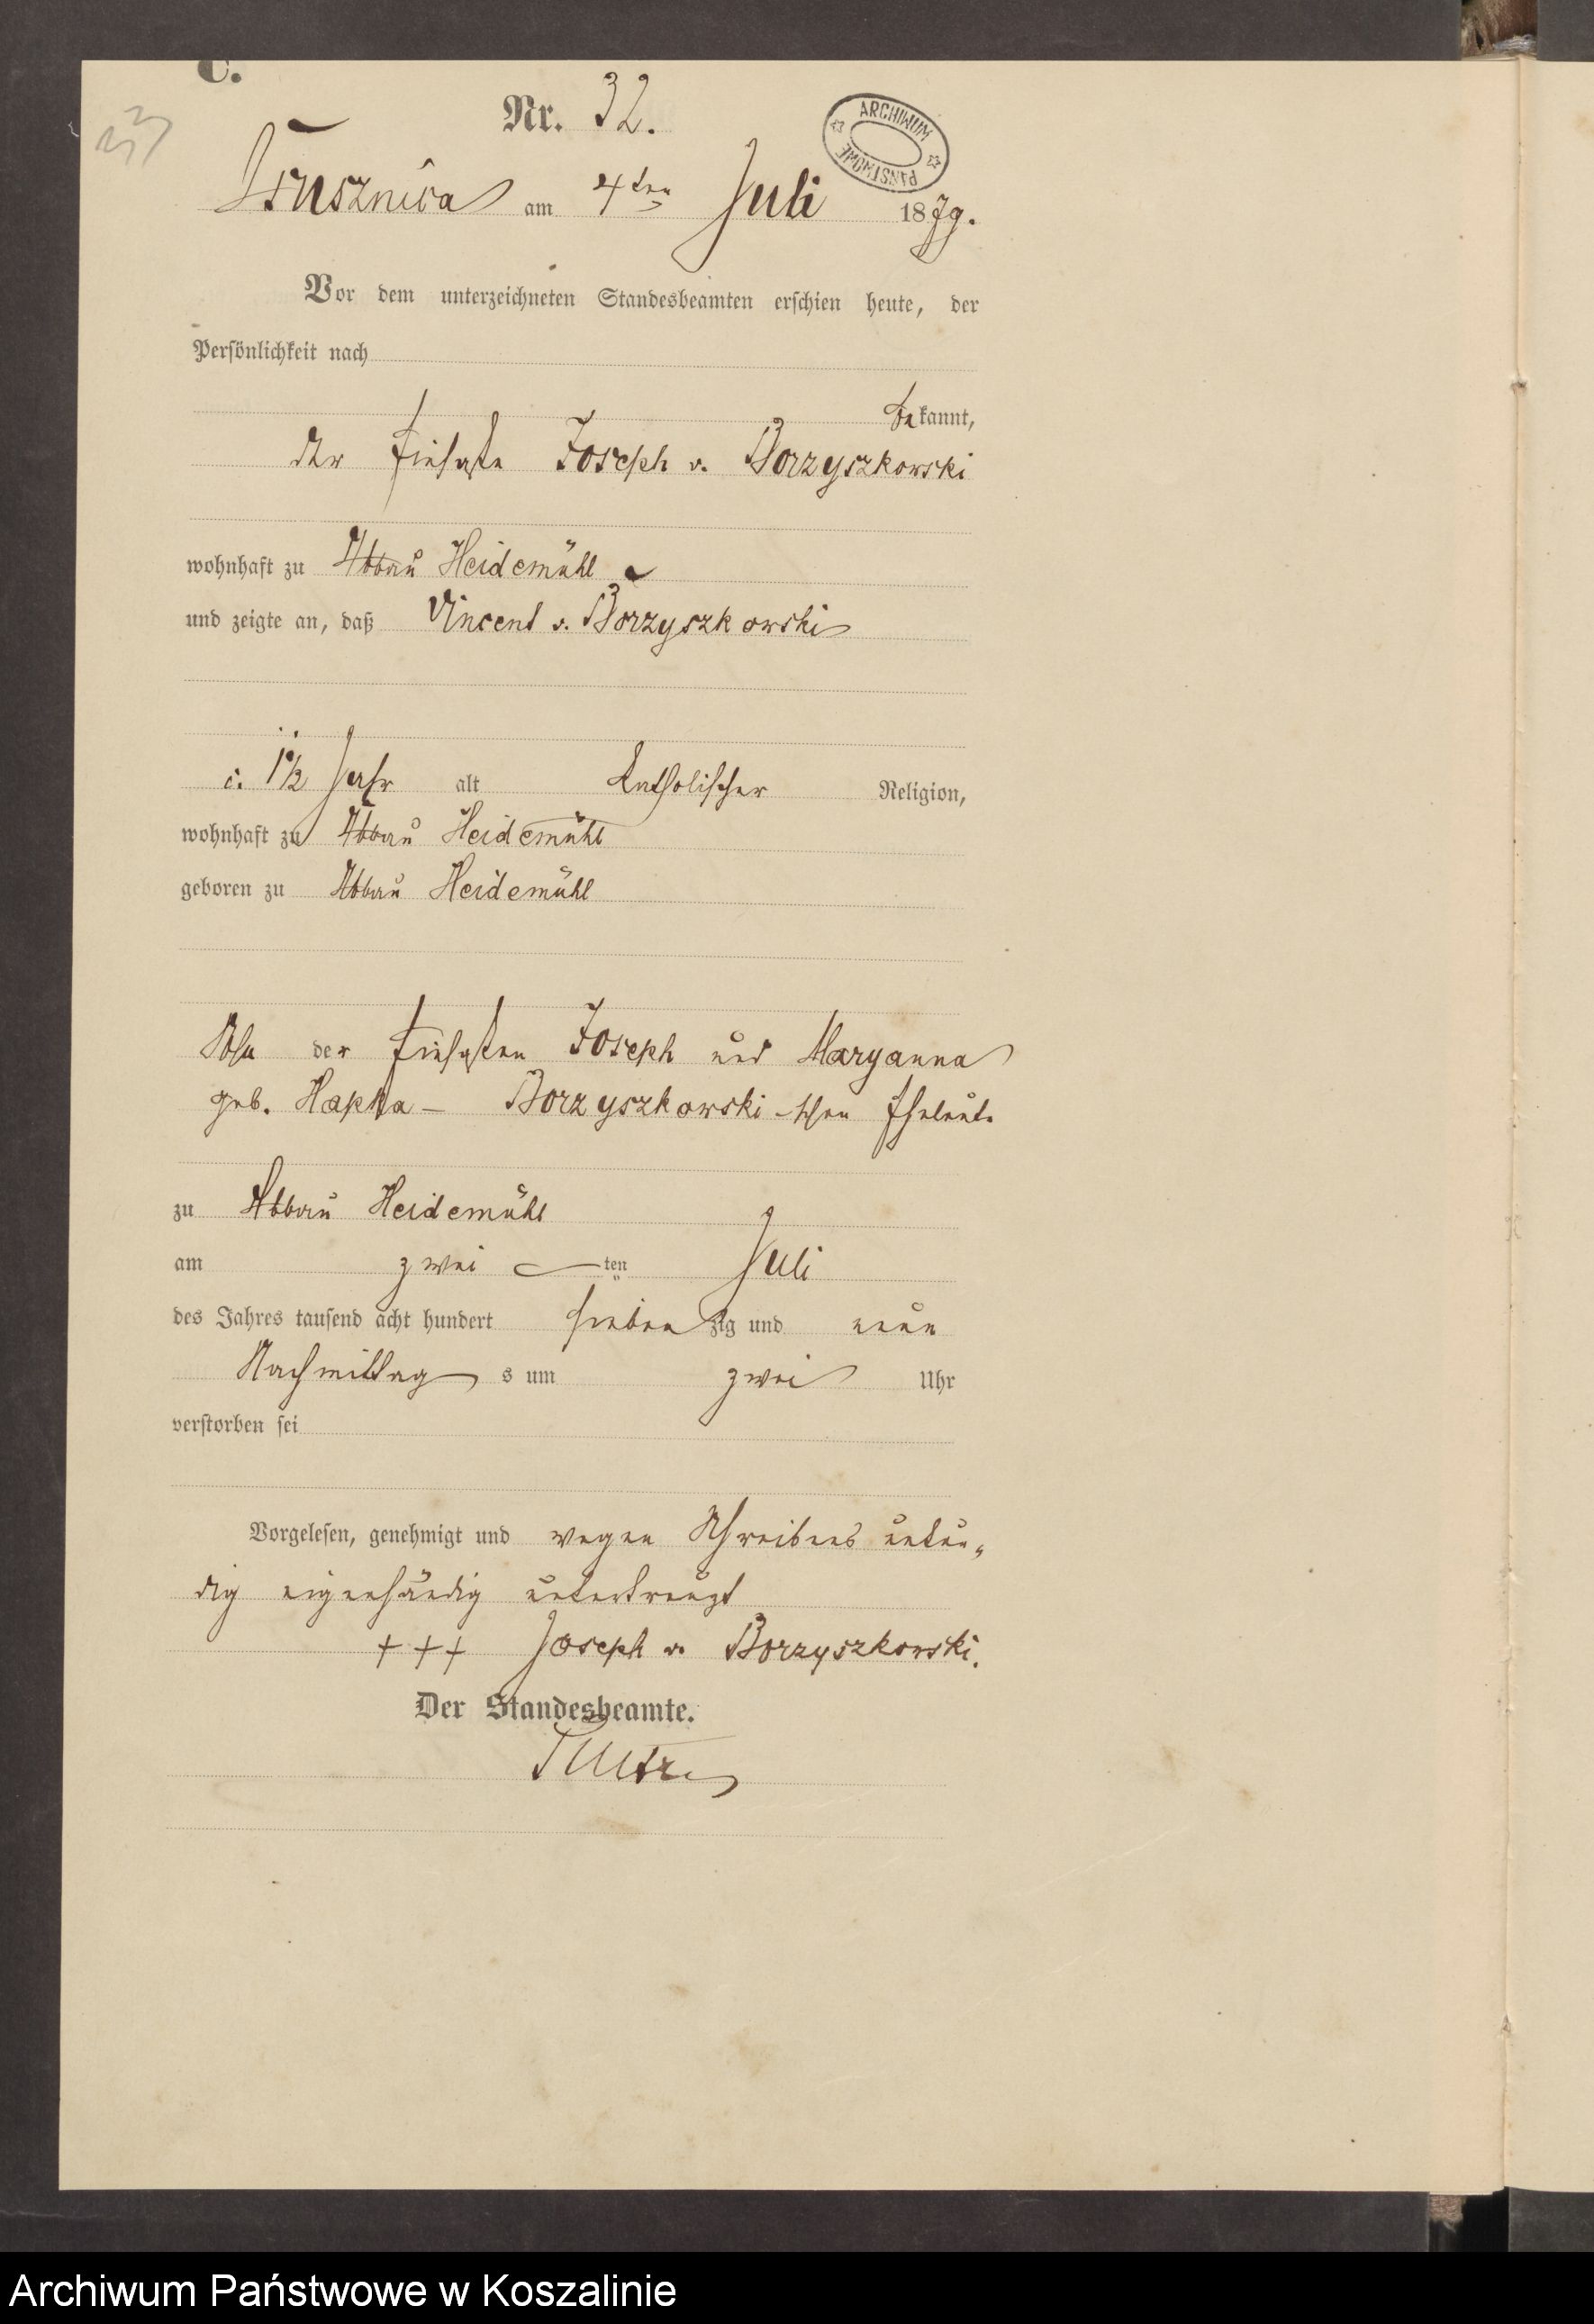 C.
33
Nr. 32.
ARCHIWUM PAŃSTWOWE
am 4ten Juli 1879.
Vor dem unterzeichneten Standesbeamten erschien heute, der
Persönlichkeit nach
bekannt,
der Joseph v. Borzyszkowski
wohnhaft zu Abbau Heidemühl
und zeigte an, daß Vincent v. Borzyszkowski
c. 1½ Jahr alt Katholischer Religion,
wohnhaft zu Abbau Heidemühl
geboren zu Abbau Heidemühl
Sohn der Joseph und Maryanna
geb. Hapka - Borzyszkowski-schen Eheleute
zu Abbau Heidemühl
am zwei ten Juli
des Jahres tausend acht hundert siebenzig und neun
Nachmittag s um zwei Uhr
verstorben sei
Vorgelesen, genehmigt und wegen Schreibens unkun-
dig eigenhändig unterkreuzt
+++ Joseph v. Borzyszkowski.
Der Standesbeamte.
Archiwum Państwowe w Koszalinie